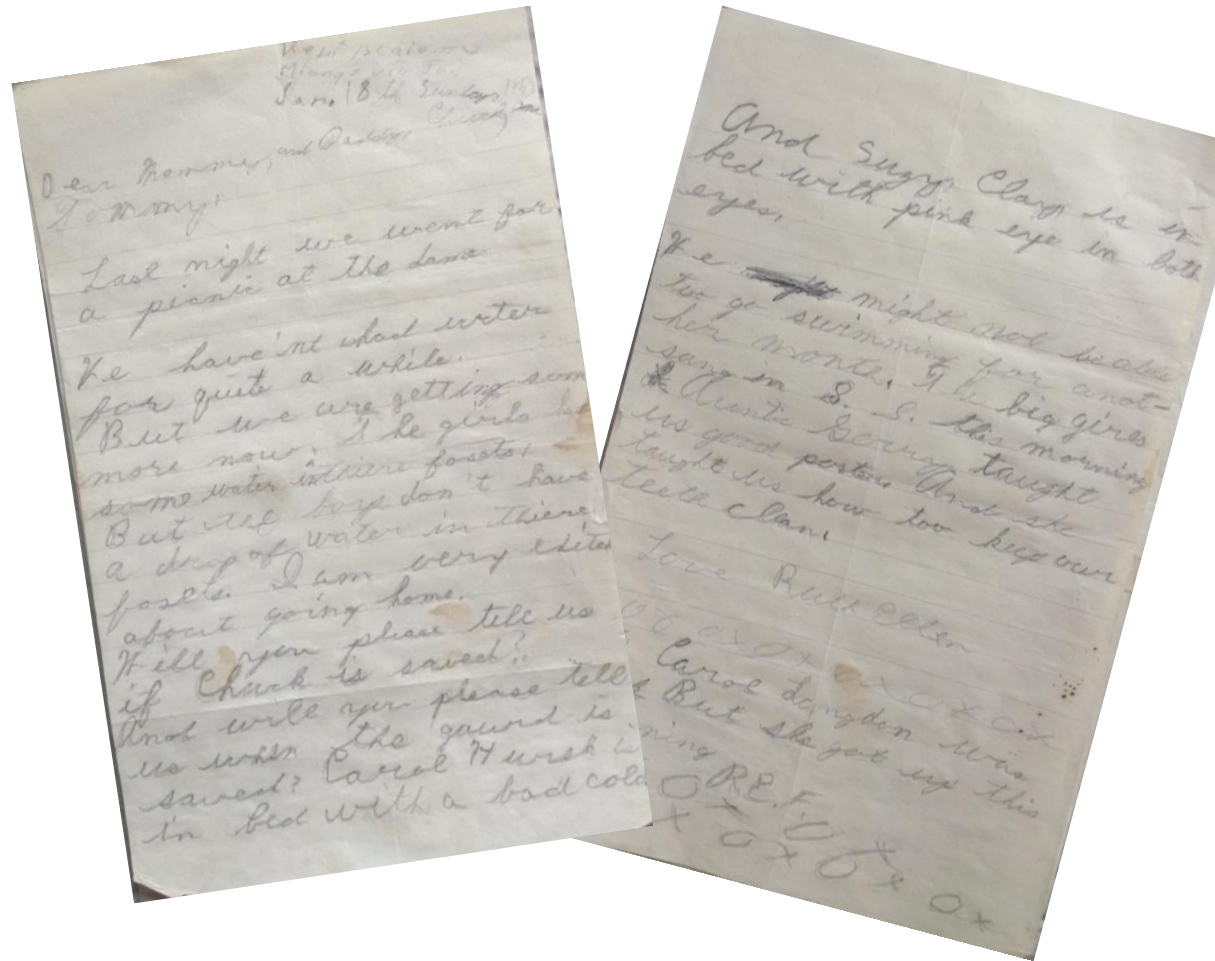 Jan. 18th Sunday
Dear Mommy, and Daddy, Chuck
Tommy,
Last night we went for
a picnic at the dame
We have'nt had water
for quite a while.
But we are getting som
more now. The girls ha
some water in thiere fosets,
But the boys don't have
a drop of water in thiere
fosets. I am very exited
about going home.
Will you please tell us
if Chuck is saved?
And will you please tell
us when the gaurd is
saved? Carol Hursh is
in bed with a bad cold
And Suzy Clay is in
bed with pink eye in both
eyes.
We might not be able
too go swimming for anot-
her month. The big gires
sang in S. S. this morning
Auntie taught
us good posture And she
taught us how too keep our
teeth clean.
Love Ruth Ellen
O X O X O X O X O X O X
Carol Langdon was
But she got up this
ning R.E.F.
O X O X O X O X
X O X O X O X